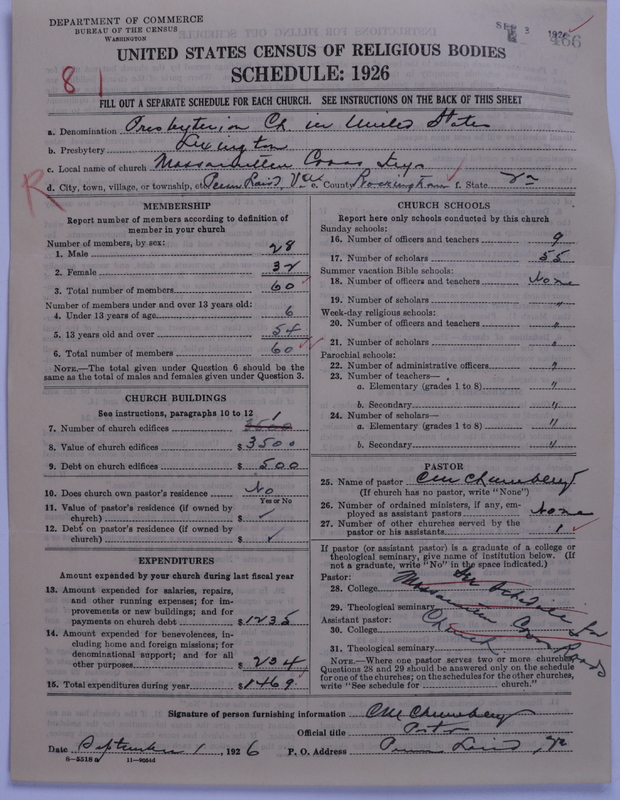 DEPARTMENT OF COMMERCE
BUREAU OF THE CENSUS
WASHINGTON
SEP 3 1926
466
UNITED STATES CENSUS OF RELIGIOUS BODIES
SCHEDULE: 1926
81
FILL OUT A SEPARATE SCHEDULE FOR EACH CHURCH. SEE INSTRUCTIONS ON THE BACK OF THIS SHEET
a. Denomination Presbyterian Ch. in United States
b. Presbytery Lexington
c. Local name of church Massanutten Cross Keys
R
d. City, town, village, or township, etc. Penn Laird, Va. e. County Rockingham f. State Va
MEMBERSHIP
Report number of members according to definition of member in your church
Number of members, by sex:
1. Male 28
2. Female 32
3. Total number of members 60
Number of members under and over 13 years old:
4. Under 13 years of age 6
5. 13 years old and over 54
6. Total number of members 60
NOTE.—The total given under Question 6 should be the same as the total of males and females given under Question 3.
CHURCH BUILDINGS
See instructions, paragraphs 10 to 12
7. Number of church edifices 1
8. Value of church edifices $ 3500
9. Debt on church edifices $ 500
10. Does church own pastor's residence No
Yes or No
11. Value of pastor's residence (if owned by church) $ ✓
12. Debt on pastor's residence (if owned by church) $ ✓
EXPENDITURES
Amount expended by your church during last fiscal year
13. Amount expended for salaries, repairs, and other running expenses; for improvements or new buildings; and for payments on church debt $ 1235
14. Amount expended for benevolences, including home and foreign missions; for denominational support; and for all other purposes $ 234
15. Total expenditures during year $ 1469
CHURCH SCHOOLS
Report here only schools conducted by this church
Sunday schools:
16. Number of officers and teachers 9
17. Number of scholars 55
Summer vacation Bible schools:
18. Number of officers and teachers None
19. Number of scholars "
Week-day religious schools:
20. Number of officers and teachers "
21. Number of scholars "
Parochial schools:
22. Number of administrative officers "
23. Number of teachers—
a. Elementary (grades 1 to 8) "
b. Secondary "
24. Number of scholars—
a. Elementary (grades 1 to 8) "
b. Secondary "
PASTOR
25. Name of pastor CM Chumbley
(If church has no pastor, write "None")
26. Number of ordained ministers, if any, employed as assistant pastors None
27. Number of other churches served by the pastor or his assistants 1
If pastor (or assistant pastor) is a graduate of a college or theological seminary, give name of institution below. (If not a graduate, write "No" in the space indicated.)
Pastor:
28. College See Schedule for
29. Theological seminary Massanutten Cross Roads
Assistant pastor:
30. College Church
31. Theological seminary
NOTE.—Where one pastor serves two or more churches, Questions 28 and 29 should be answered only on the schedule for one of the churches; on the schedules for the other churches, write "See schedule for church."
Signature of person furnishing information CM Chumbley
Official title Pastor
Date September 1, 1926 P. O. Address Penn Laird, Va
8-5518a 11-9254d